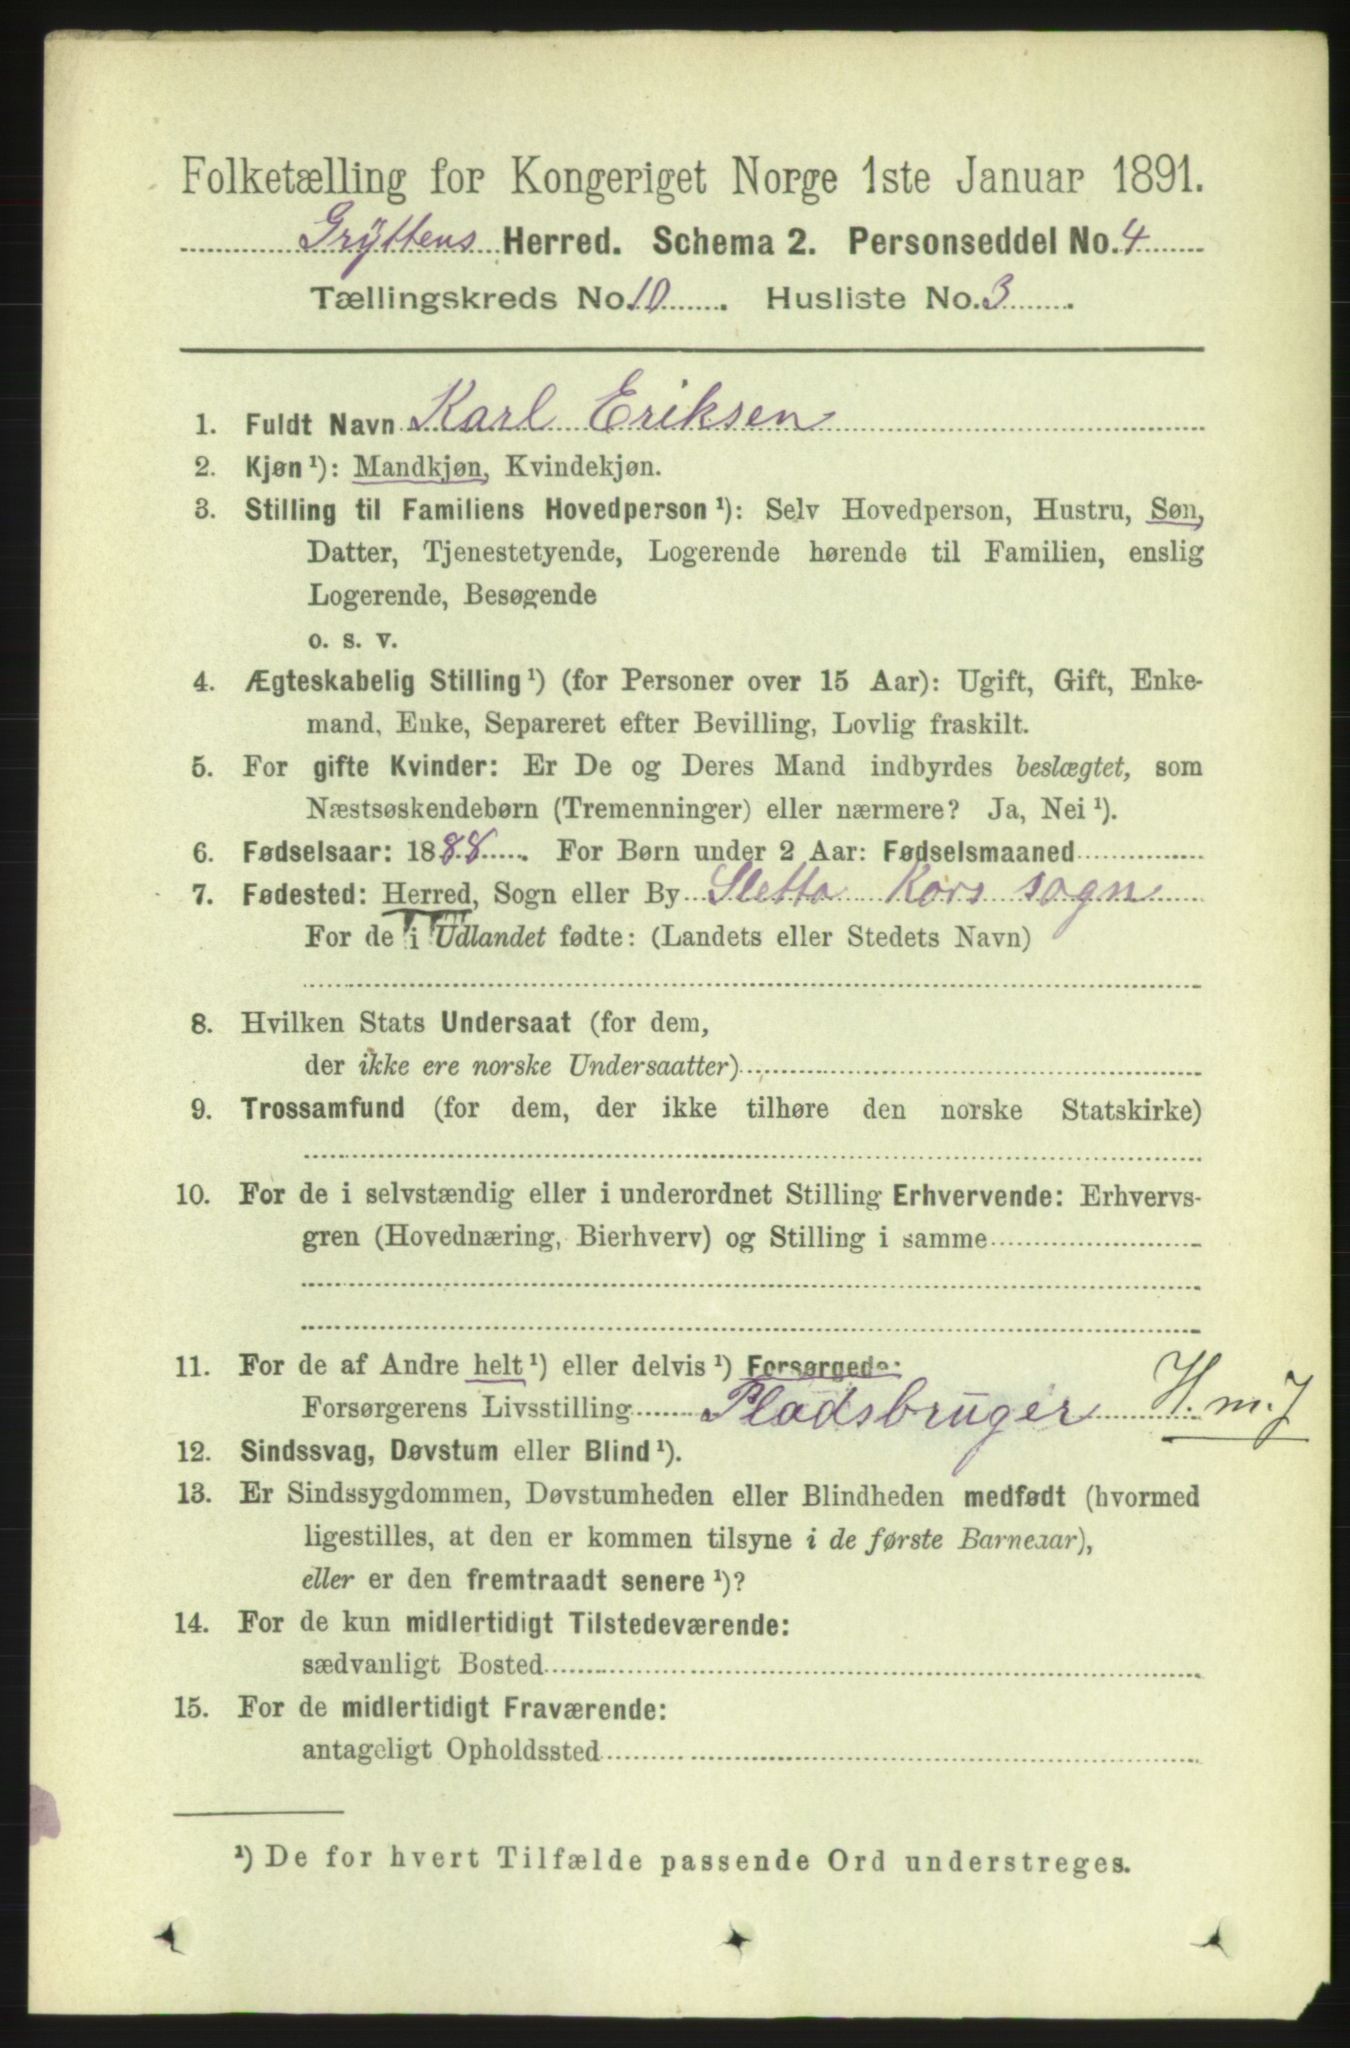 Folketælling for Kongeriget Norge 1ste Januar 1891.
Grÿttens Herred. Schema 2. Personseddel No. 4
Tællingskreds No. 10. Husliste No. 3.
1. Fuldt Navn Karl Eriksen
2. Kjøn ¹): Mandkjøn, Kvindekjøn.
3. Stilling til Familiens Hovedperson ¹): Selv Hovedperson, Hustru, Søn,
Datter, Tjenestetyende, Logerende hørende til Familien, enslig
Logerende, Besøgende
o. s. v.
4. Ægteskabelig Stilling ¹) (for Personer over 15 Aar): Ugift, Gift, Enke-
mand, Enke, Separeret efter Bevilling, Lovlig fraskilt.
5. For gifte Kvinder: Er De og Deres Mand indbyrdes beslægtet, som
Næstsøskendebørn (Tremenninger) eller nærmere? Ja, Nei ¹).
6. Fødselsaar: 1888. For Børn under 2 Aar: Fødselsmaaned
7. Fødested: Herred, Sogn eller By Sletta Kors sogn
For de i Udlandet fødte: (Landets eller Stedets Navn)
8. Hvilken Stats Undersaat (for dem,
der ikke ere norske Undersaatter)
9. Trossamfund (for dem, der ikke tilhøre den norske Statskirke)
10. For de i selvstændig eller i underordnet Stilling Erhvervende: Erhvervs-
gren (Hovednæring, Bierhverv) og Stilling i samme
11. For de af Andre helt ¹) eller delvis ¹) Forsørgede:
Forsørgerens Livsstilling Pladsbruger H. m. J
12. Sindssvag, Døvstum eller Blind ¹).
13. Er Sindssygdommen, Døvstumheden eller Blindheden medfødt (hvormed
ligestilles, at den er kommen tilsyne i de første Barneaar),
eller er den fremtraadt senere ¹)?
14. For de kun midlertidigt Tilstedeværende:
sædvanligt Bosted
15. For de midlertidigt Fraværende:
antageligt Opholdssted
¹) De for hvert Tilfælde passende Ord understreges.